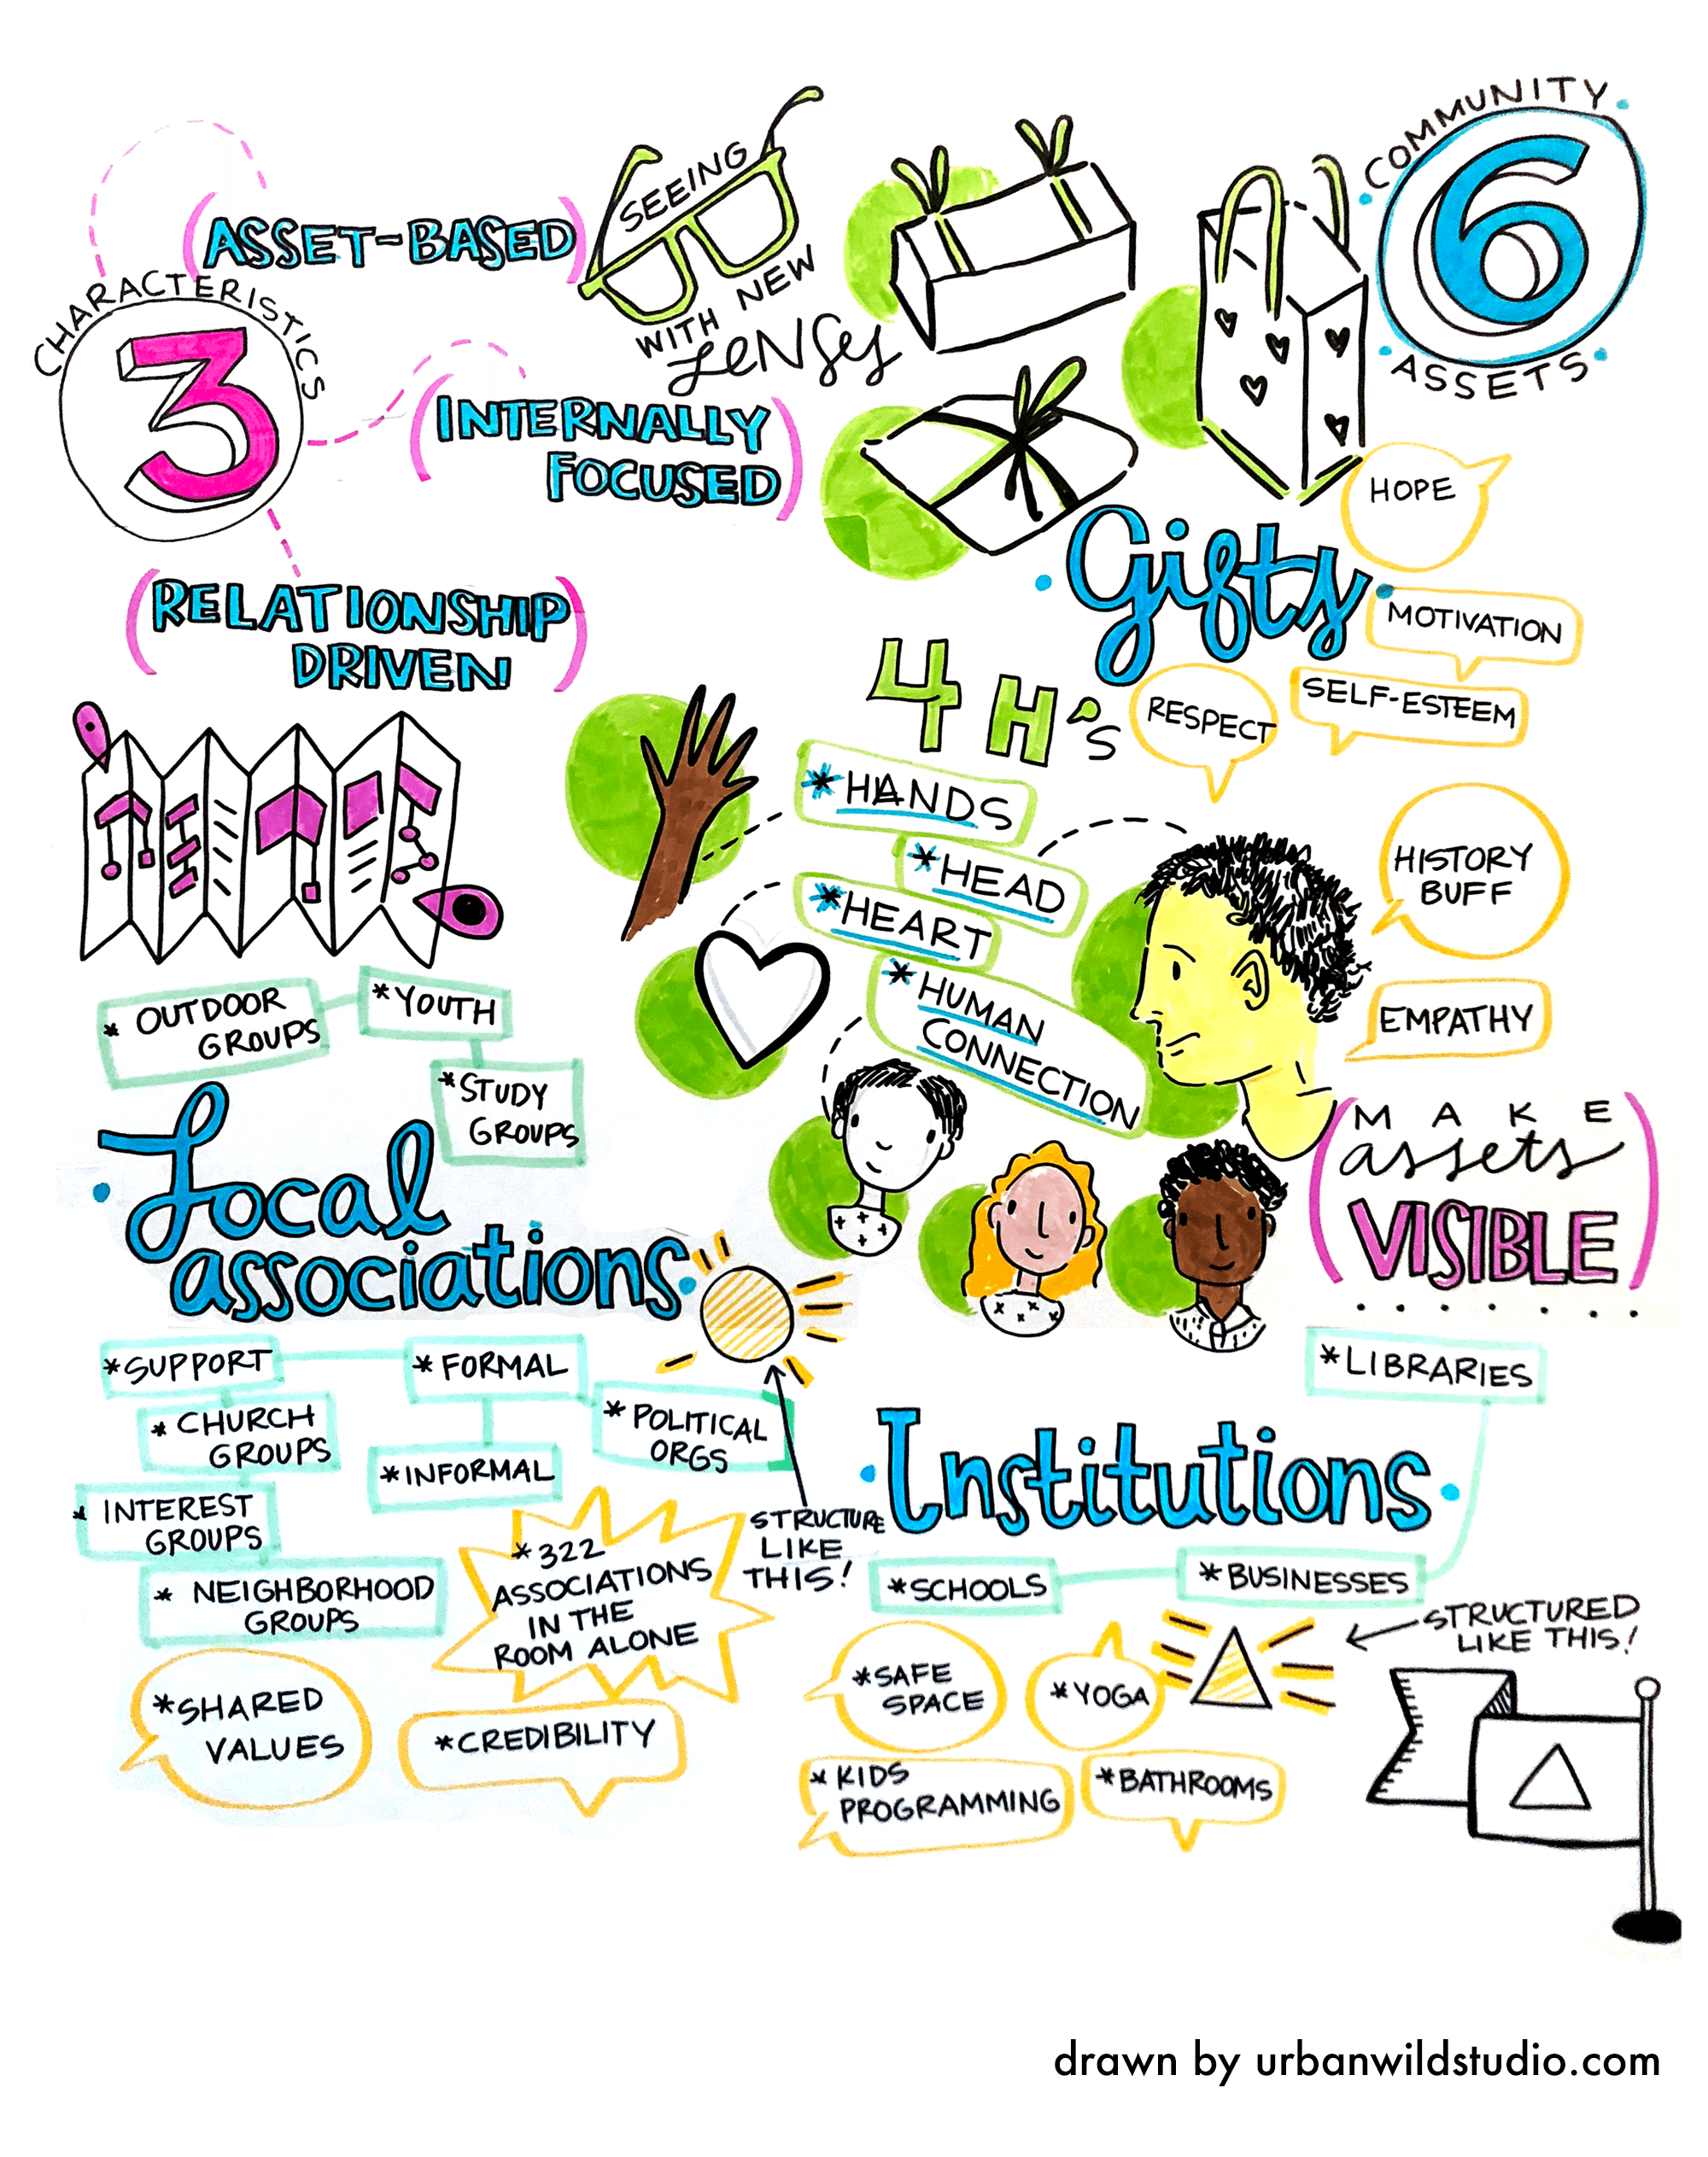 CHARACTERISTICS
3
(ASSET-BASED)
SEEING
WITH NEW
LENSES
(INTERNALLY
FOCUSED)
(RELATIONSHIP
DRIVEN)
COMMUNITY
6
ASSETS
Gifts
HOPE
MOTIVATION
SELF-ESTEEM
RESPECT
4 H's
*HANDS
*HEAD
*HEART
*HUMAN
CONNECTION
HISTORY
BUFF
EMPATHY
(MAKE
assets
VISIBLE)
* OUTDOOR
GROUPS
*YOUTH
*STUDY
GROUPS
Local
associations
*SUPPORT
*FORMAL
*CHURCH
GROUPS
*INFORMAL
*POLITICAL
ORGS
* INTEREST
GROUPS
* NEIGHBORHOOD
GROUPS
*322
ASSOCIATIONS
IN THE
ROOM ALONE
STRUCTURE
LIKE
THIS!
*SHARED
VALUES
*CREDIBILITY
*LIBRARIES
Institutions
*SCHOOLS
*BUSINESSES
STRUCTURED
LIKE THIS!
*SAFE
SPACE
*YOGA
*KIDS
PROGRAMMING
*BATHROOMS
drawn by urbanwildstudio.com